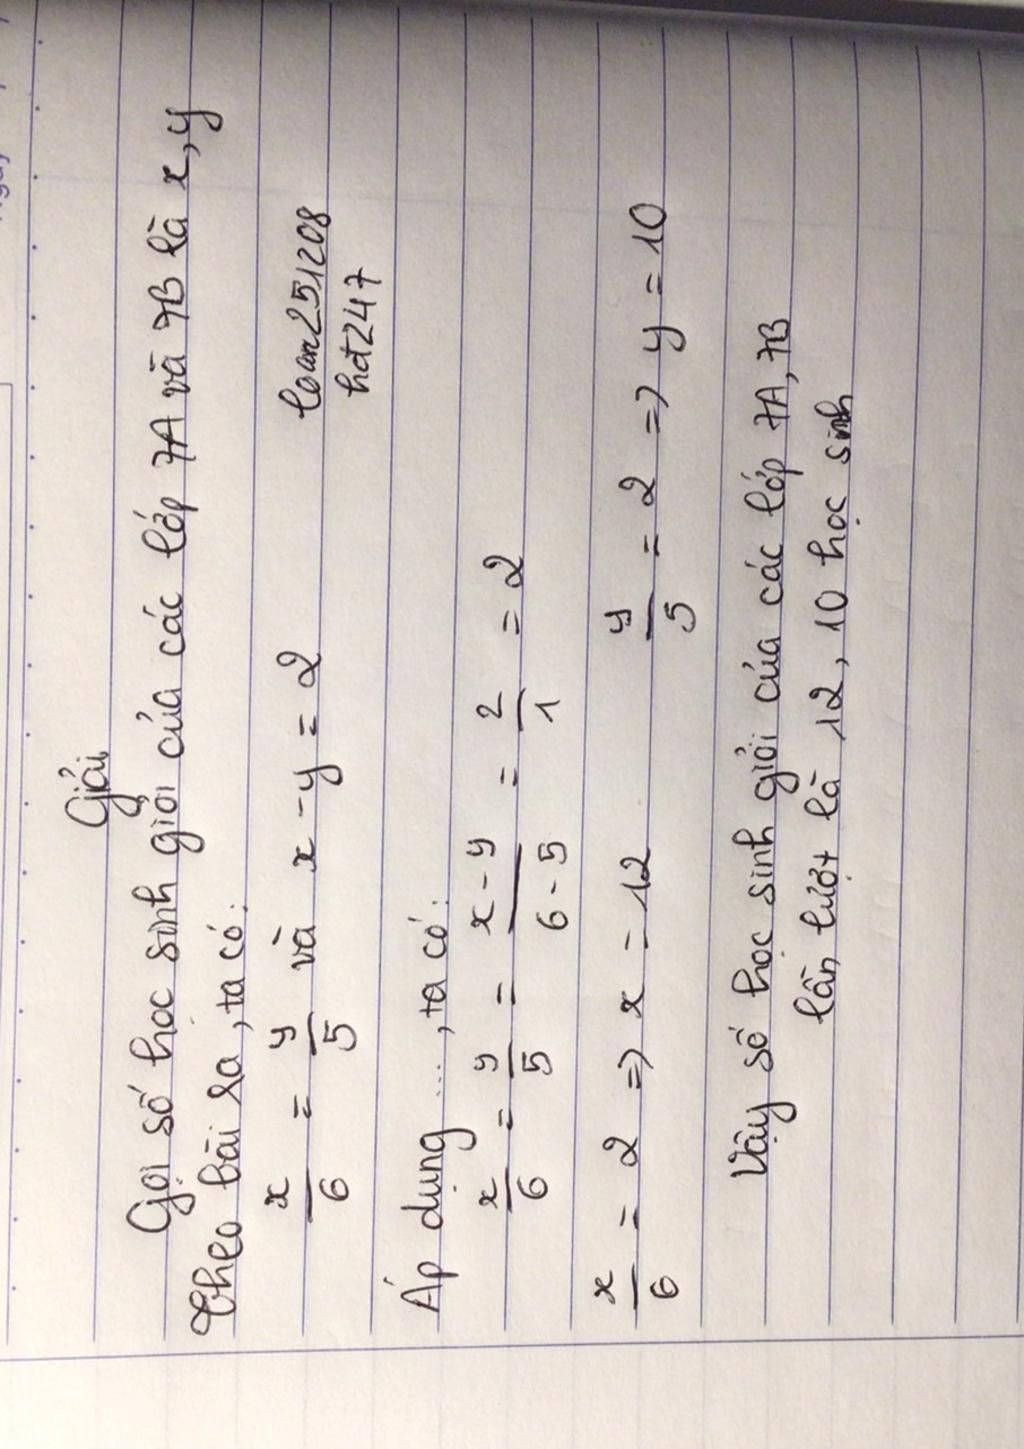 Giải
Gọi số học sinh giỏi của các lớp 7A và 7B là x, y
Theo bài ra, ta có:
x/6 = y/5 và x - y = 2
loan251208
hdt247
Áp dụng ..., ta có:
x/6 = y/5 = x - y/6 - 5 = 2/1 = 2
x/6 = 2 => x = 12 y/5 = 2 => y = 10
Vậy số học sinh giỏi của các lớp 7A, 7B
lần lượt là 12, 10 học sinh